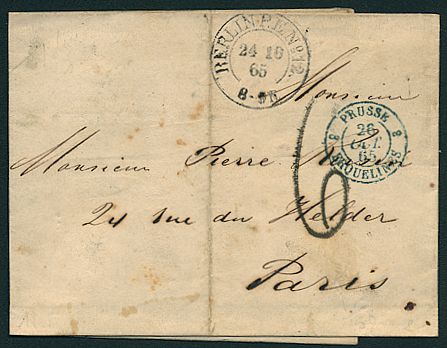 BERLIN P.E. No 12.
24 10
65
8-9N
PRUSSE
8 26 8
OCT.
65
ERQUELINES
Monsieur
Monsieur Pierre
6
24 rue du Helder
Paris